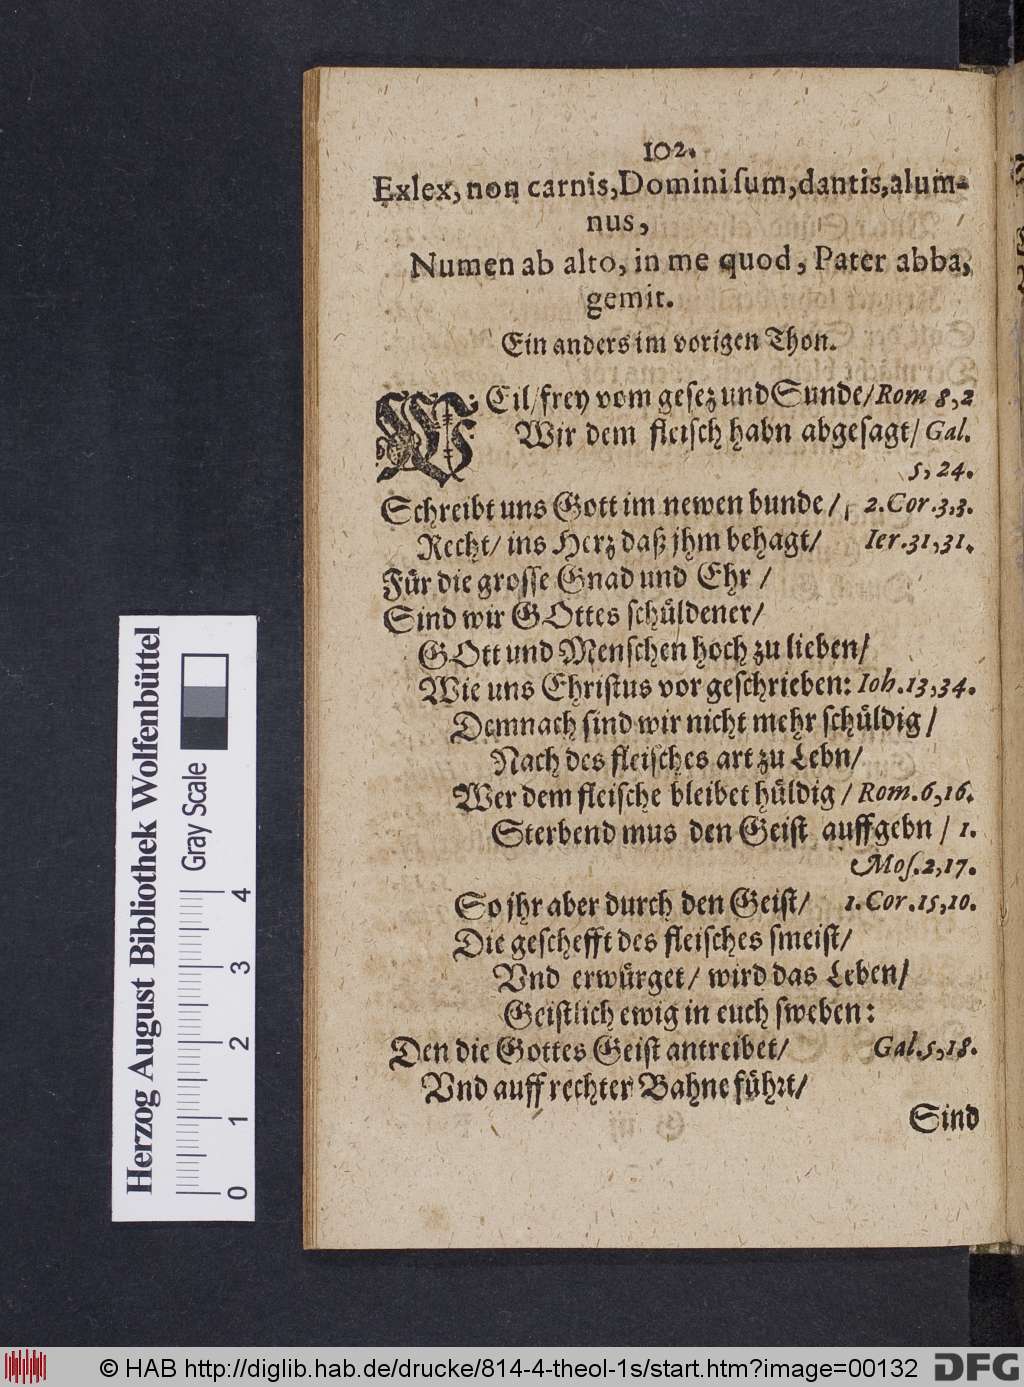 102.
Exlex, non carnis, Domini ſum, dantis, alum-
nus,
Numen ab alto, in me quod, Pater abba,
gemit.
Ein anders im vorigen Thon.
WEil/ frey vom geſez und Sunde/ Rom 8,2
Wir dem fleiſch habn abgeſagt/ Gal.
5, 24.
Schreibt uns Gott im newen bunde/ 2. Cor. 3,3.
Recht/ ins Herz daß jhm behagt/ Ier. 31,31.
Für die groſſe Gnad und Ehr /
Sind wir GOttes ſchüldener/
GOtt und Menſchen hoch zu lieben/
Wie uns Chriſtus vor geſchrieben: Ioh. 13,34.
Demnach ſind wir nicht mehr ſchüldig /
Nach des fleiſches art zu Lebn/
Wer dem fleiſche bleibet hüldig / Rom. 6,16.
Sterbend mus den Geiſt auffgebn / 1.
Moſ. 2,17.
So jhr aber durch den Geiſt/ 1. Cor. 15,10.
Die geſchefft des fleiſches ſmeiſt/
Vnd erwürget/ wird das Leben/
Geiſtlich ewig in euch ſweben:
Den die Gottes Geiſt antreibet/ Gal. 5,18.
Vnd auff rechter Bahne führt/
Sind
Herzog August Bibliothek Wolfenbüttel
Gray Scale
0 1 2 3 4
© HAB http://diglib.hab.de/drucke/814-4-theol-1s/start.htm?image=00132
DFG